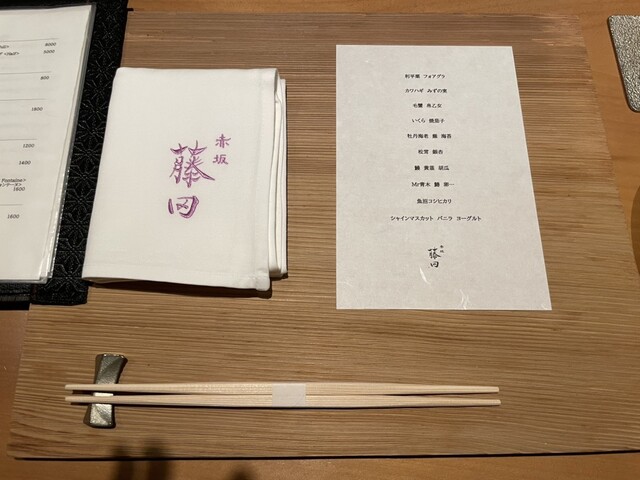 6000
5000
800
1800
1200
1400
Fontaine>
1600
1600
赤坂
藤田
利平栗 フォアグラ
カワハギ みずの実
毛蟹 魚乙女
いくら 焼茄子
牡丹海老 鮑 海苔
松茸 鍋衣
鰆 黄韮 胡瓜
Mr青木 鰻
魚沼コシヒカリ
シャインマスカット バニラ ヨーグルト
赤坂
藤田